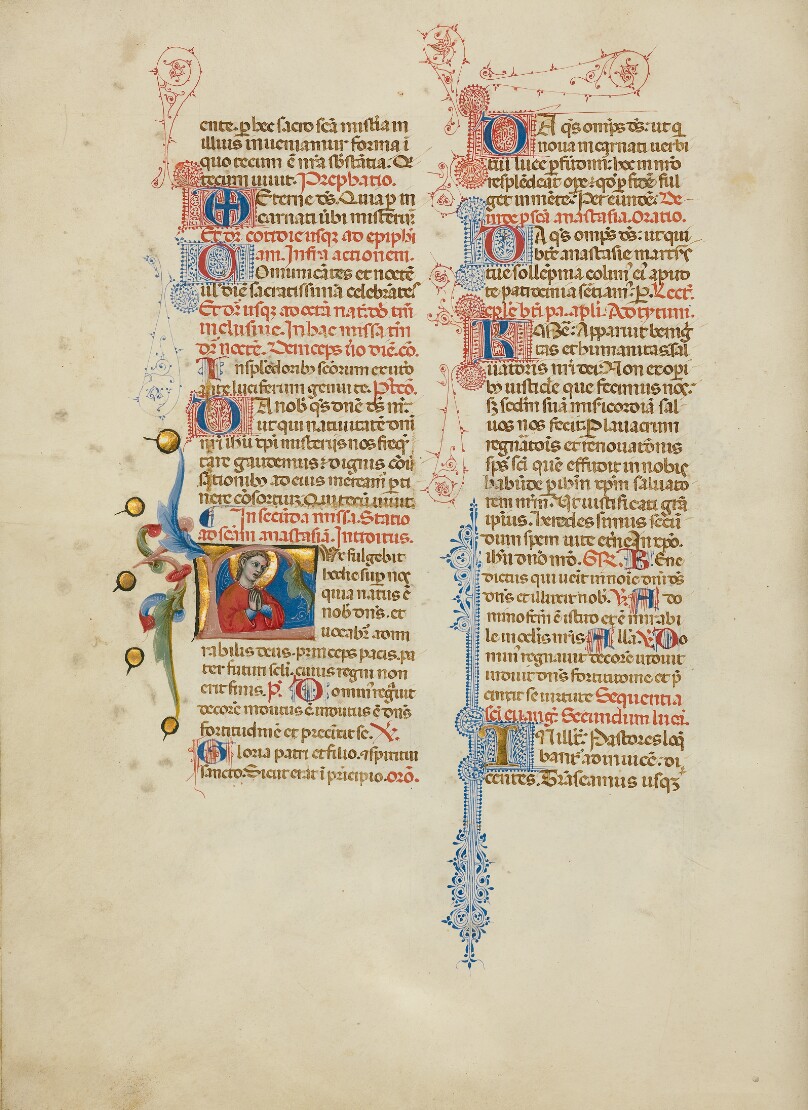 ente. p hec sacro scā mistia in
illius inueniamur forma ī
quo tecum ē nr̄a sb̄stantia. Q
tecum uiuit. Prephatio.
Eterne ds̄. Quia p in
carnati ūbi misteriū
Et dr̄ cotidie usque ad epiphi
am. Infra actionem.
Comunicātes et noctē
ul diē sacratissimā celebrātes
Et dr̄ usque ad octā nat. dn̄i tm̄
inclusiue. In hac missa tm̄
dr̄ noctē. Deinceps ūo diē. cō.
In splēdorib; scōrum ex uto
ante luciferum genui te. Pꝰcō.
Da nob̄ qs̄ dn̄e ds̄ nr̄:
ut qui natiuitatē dn̄i
nr̄i ih̄u xp̄i misteriis nos freq̄
tare gaudemus: dignis cōu
sationib; ad eius meream̄ pti
nere cōsortiū. Qui tecū uiuit.
In secūda missa. Statio
ad scām anastasiā. Introitus.
Lux fulgebit
hodie sup nos
quia natus ē
nob̄ dn̄s. et
uocab̄r admi
rabilis deus. princeps pacis. pa
ter futuri scl̄i. cuius regni non
erit finis. P̄. Dominꝰ regāuit
decorē indutus ē indutus ē dn̄s
fortitudinē et precīxit se. V.
Gloria patri et filio. et spiritui
sancto. Sicut erat ī prīcipio. orō.
Da qs̄ omīps ds̄: ut q
noua incarnati uerbi
tui luce pfūdimr̄: hoc in nr̄o
resplēdeat ope: qd̄ p fidē ful
get in mēte. Per eundē. De
inde p scā anastasia. Oratio.
Da qs̄ omīps ds̄: ut qui
bt̄e anastasie martiris
tue sollēpnia colimꝰ: eꝰ apud
te patrocinia sētiamꝰ. P. Lect.
eple bt̄i pa. apl̄i. Ad tytum.
Kar̄me: Apparuit beniḡ
tas et humanitas sal
uatoris nr̄i dei: Non ex opi
b; iusticie que fecimus nos:
sꝫ scd̄m suā misericordiā sal
uos nos fecit: P lauacrum
regn̄atōis et renouatōnis
sp̄s scī quē effudit in nobis
habūde p ih̄m xp̄m saluato
rem nr̄m. Ut iustificati grā
ipius. heredes simus secū
dum spem uite eterne. In xp̄o.
ih̄u dn̄o nr̄o. GR. Bene
dictus qui uenit in noīe dn̄i ds̄
dn̄s et illuxit nob̄. V. A do
mino fcm̄ ē istud et ē mirabi
le in oclis nr̄is. Alla. V. Do
minꝰ regnauit decorē īduit
induit dn̄s fortitudinē et p̄
cinxit se uirtute Sequentia
sci euanḡ. Secundum lucā.
In ill̄ t̄: Pastores loq̄
bant̄ ad inuicē. di
centes. Trāseamus usqꝫ